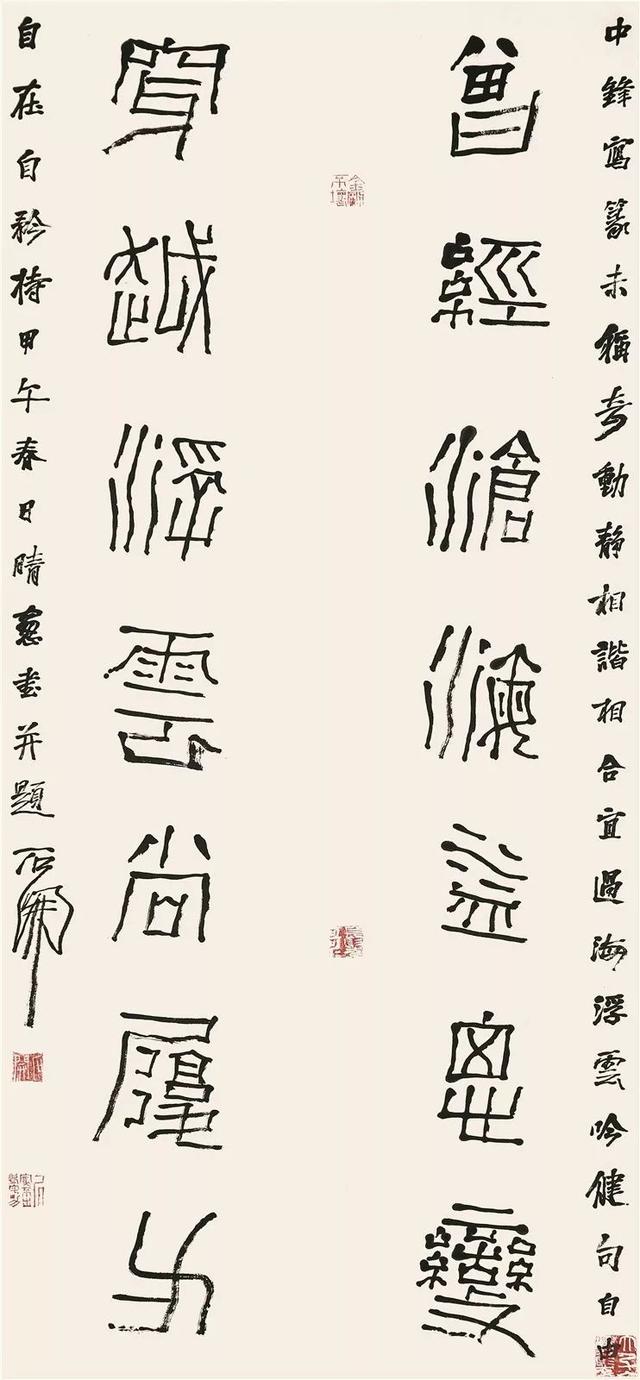 中鋒寫篆未稱奇動靜相諧相合宜過海浮雲吟健句自由
曾經滄海益思變
穿越浮雲尚履方
自在自矜持甲午春日晴窻書并題石開